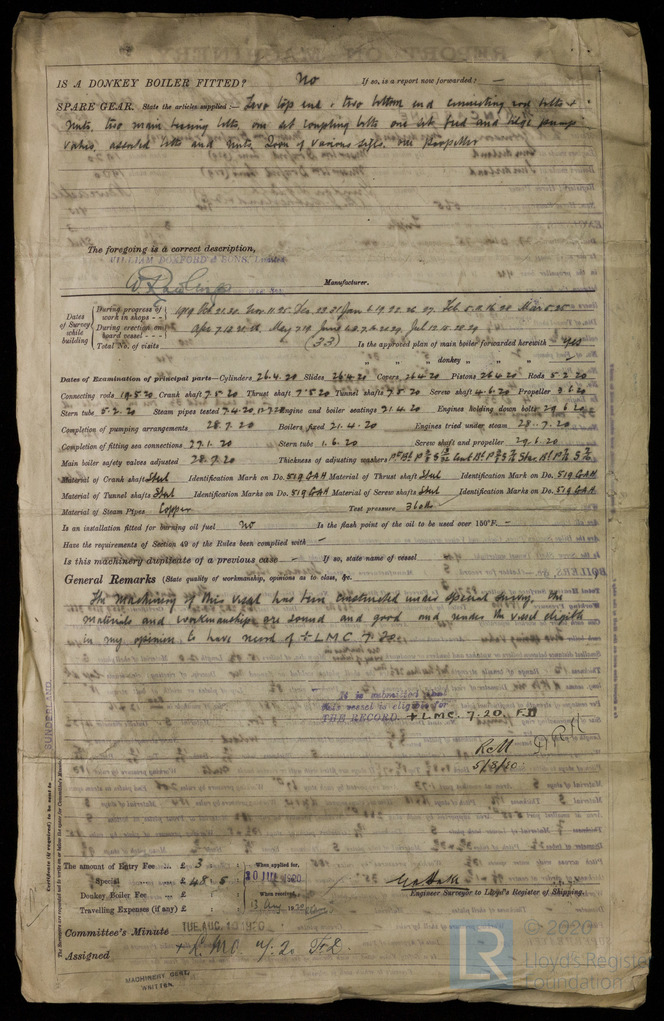 IS A DONKEY BOILER FITTED? No If so, is a report now forwarded? —
SPARE GEAR. State the articles supplied:— Two top end & two bottom end connecting rod bolts &
nuts, two main bearing bolts, one set coupling bolts one set feed and bilge pump
valves, assorted bolts and nuts, Iron of various sizes. one propeller
The foregoing is a correct description,
WILLIAM DOXFORD & SONS, Limited
Manufacturer.
Dates of Survey while building
During progress of work in shops - -
During erection on board vessel - - -
Total No. of visits (33) Is the approved plan of main boiler forwarded herewith Yes
" " " donkey " " "
Dates of Examination of principal parts—Cylinders 26.4.20 Slides 26.4.20 Covers 26.4.20 Pistons 26.4.20 Rods 5.2.20
Connecting rods 19.5.20 Crank shaft 7.5.20 Thrust shaft 7.5.20 Tunnel shafts 7.5.20 Screw shaft 4.6.20 Propeller 3.6.20
Stern tube 5.2.20 Steam pipes tested 7.4.20, Engine and boiler seatings 21.4.20 Engines holding down bolts 29.6.20
Completion of pumping arrangements 28.7.20 Boilers fixed 21.4.20 Engines tried under steam 28.7.20
Completion of fitting sea connections 27.1.20 Stern tube 1.6.20 Screw shaft and propeller 29.6.20
Main boiler safety valves adjusted 28.7.20 Thickness of adjusting washers
Material of Crank shaft Steel Identification Mark on Do. 519 GAH Material of Thrust shaft Steel Identification Mark on Do. 519 GAH
Material of Tunnel shafts Steel Identification Marks on Do. 519 GAH Material of Screw shafts Steel Identification Marks on Do. 519 GAH
Material of Steam Pipes Copper Test pressure
Is an installation fitted for burning oil fuel No Is the flash point of the oil to be used over 150°F. —
Have the requirements of Section 49 of the Rules been complied with —
Is this machinery duplicate of a previous case — If so, state name of vessel
General Remarks (State quality of workmanship, opinions as to class, &c.
The machinery of this vessel has been constructed under special survey, the
materials and workmanship are sound and good and renders the vessel eligible
in my opinion to have record of + LMC 7.20.
It is submitted that
this vessel is eligible for
THE RECORD. + LMC. 7.20 F.D
5/8/20
SUNDERLAND.
Certificate (if required) to be sent to
The Surveyors are requested not to write on or below the space for Committee's Minute.
The amount of Entry Fee .. £ 3 : :
Special .. £ 48 : 5 :
Donkey Boiler Fee .. £ : :
Travelling Expenses (if any) £ : :
When applied for,
30 JUL 1920
When received,
Engineer Surveyor to Lloyd's Register of Shipping.
Committee's Minute TUE. AUG. 10 1920
Assigned + L.M.C. 7.20 F.D.
MACHINERY CERT.
WRITTEN.
LR © 2020
Lloyd's Register
Foundation